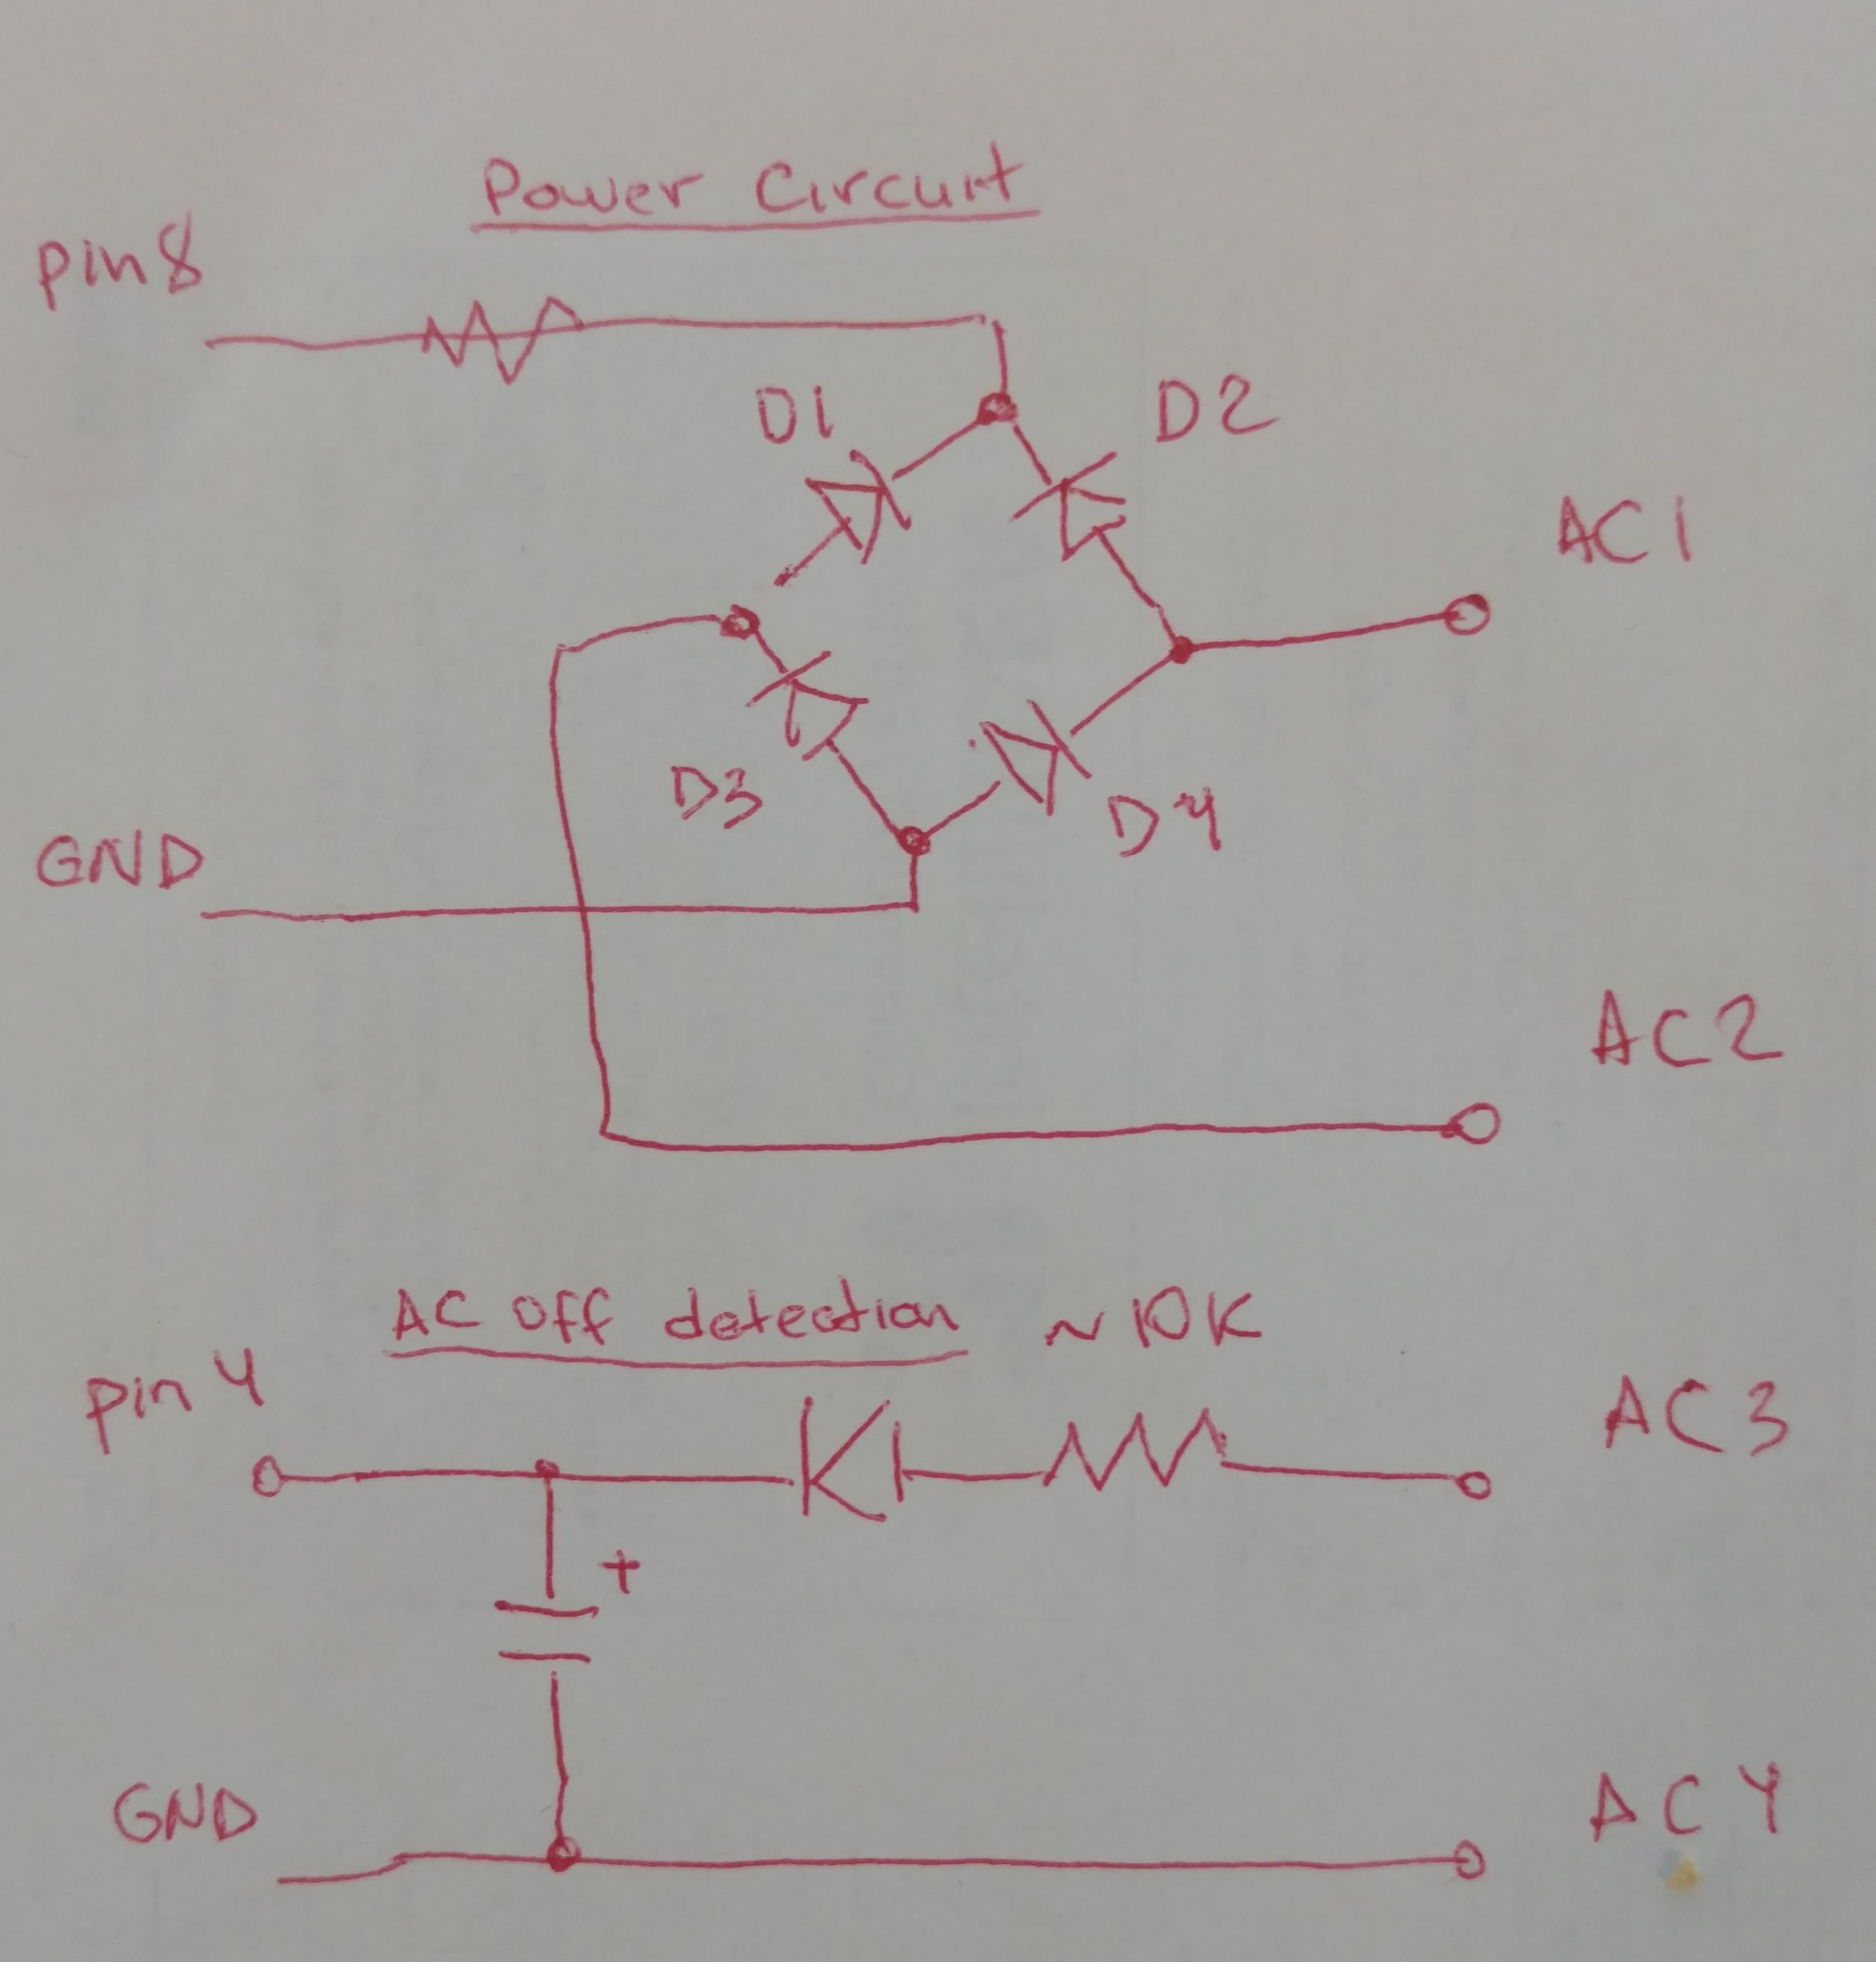 Power Circuit
pin8
D1
D2
AC1
D3
D4
GND
AC2
AC Off detection ~10K
pin 4
AC3
+
GND
AC4